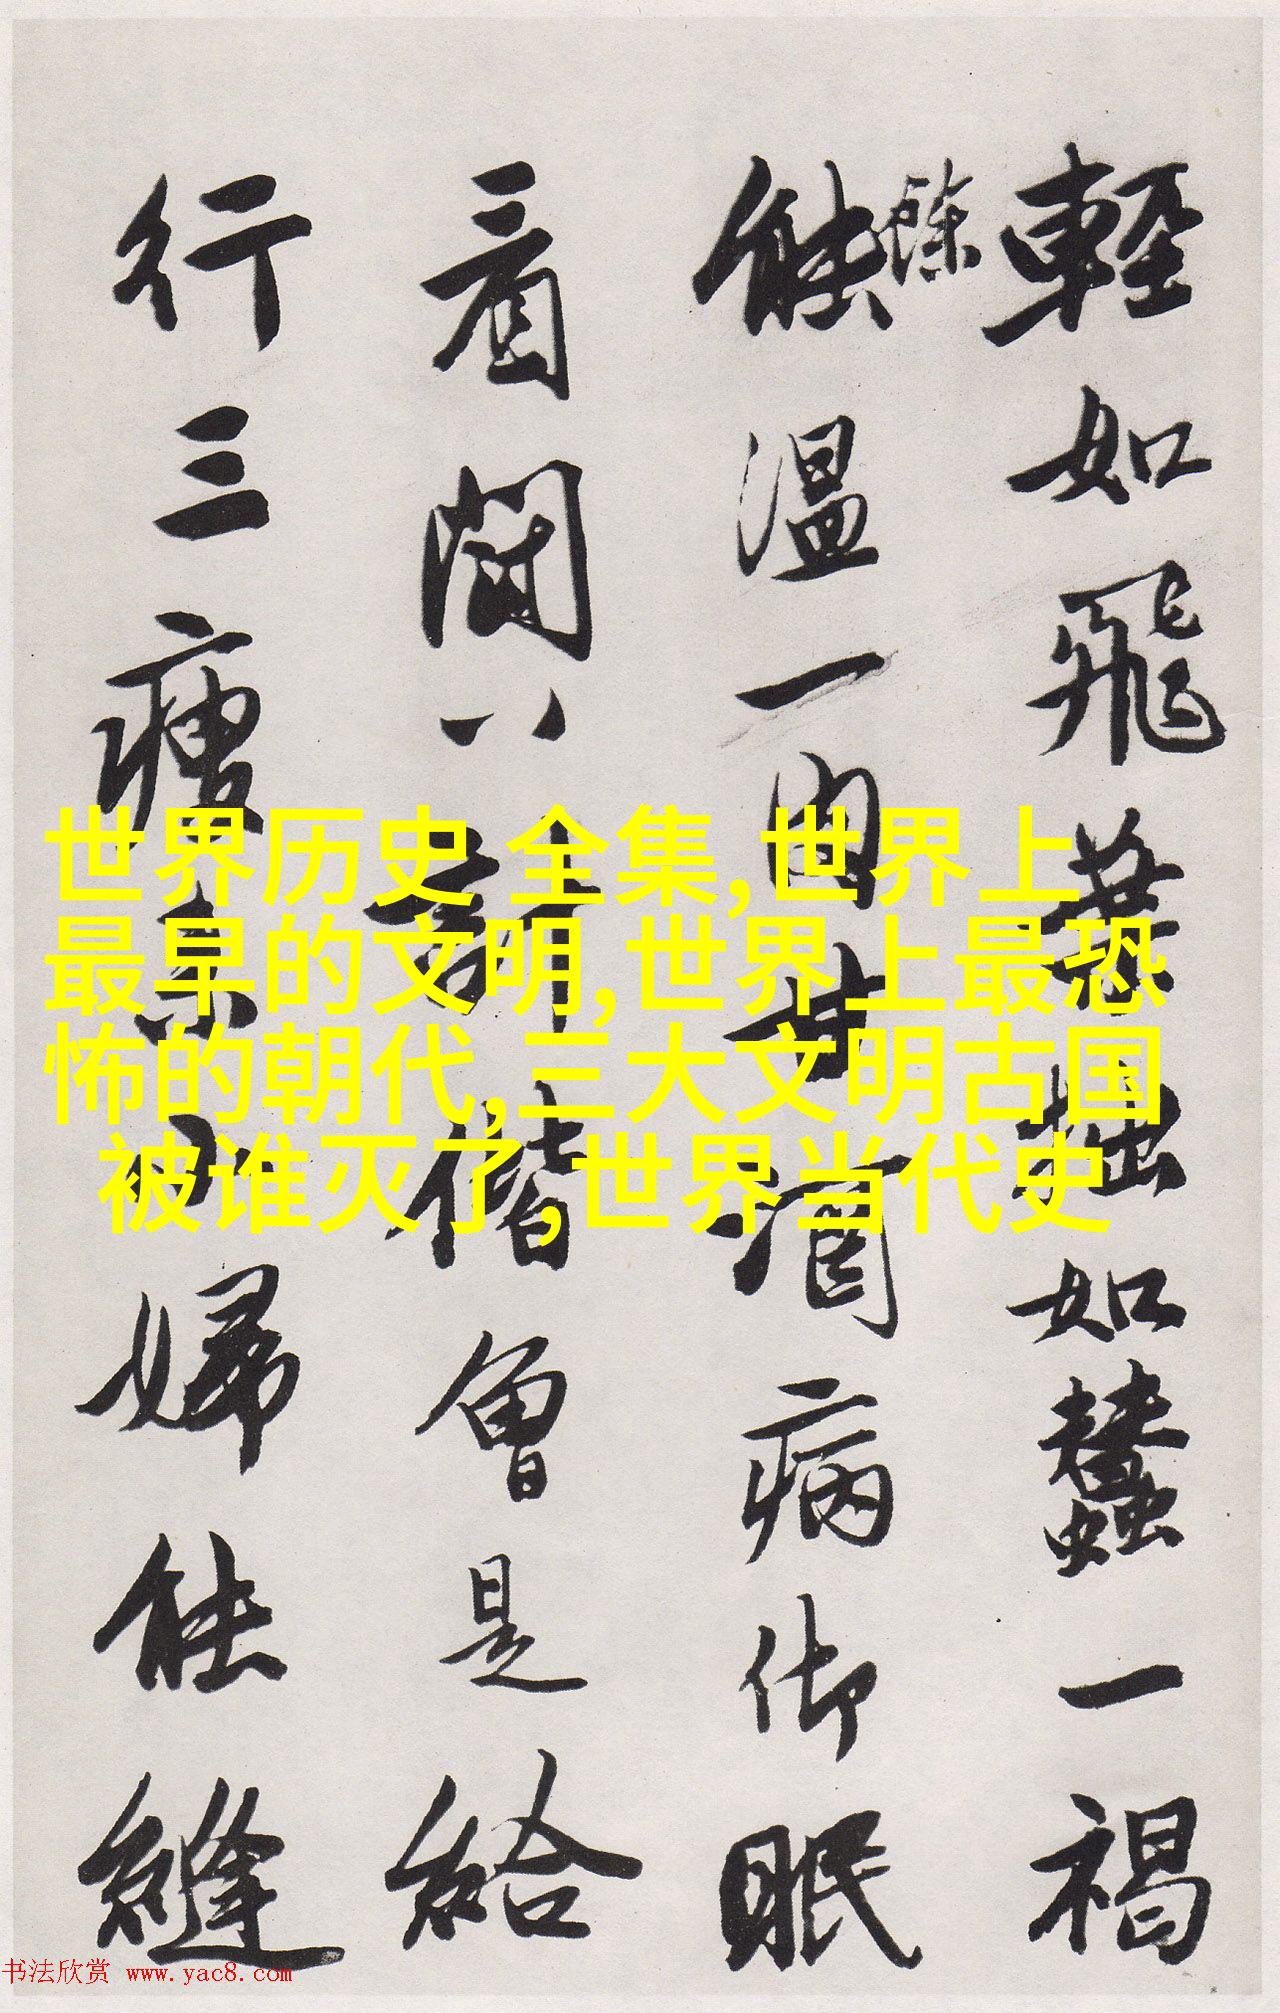 輕如飛拙如蠶一褐
能溫一肉甘酒病眠
看是給
行三瘦婦能縫
世界历史 全集,世界上
最早的文明,世界上最恐
怖的朝代,三大文明古国
被谁灭了,世界当代史
书法欣赏 www.yac8.com